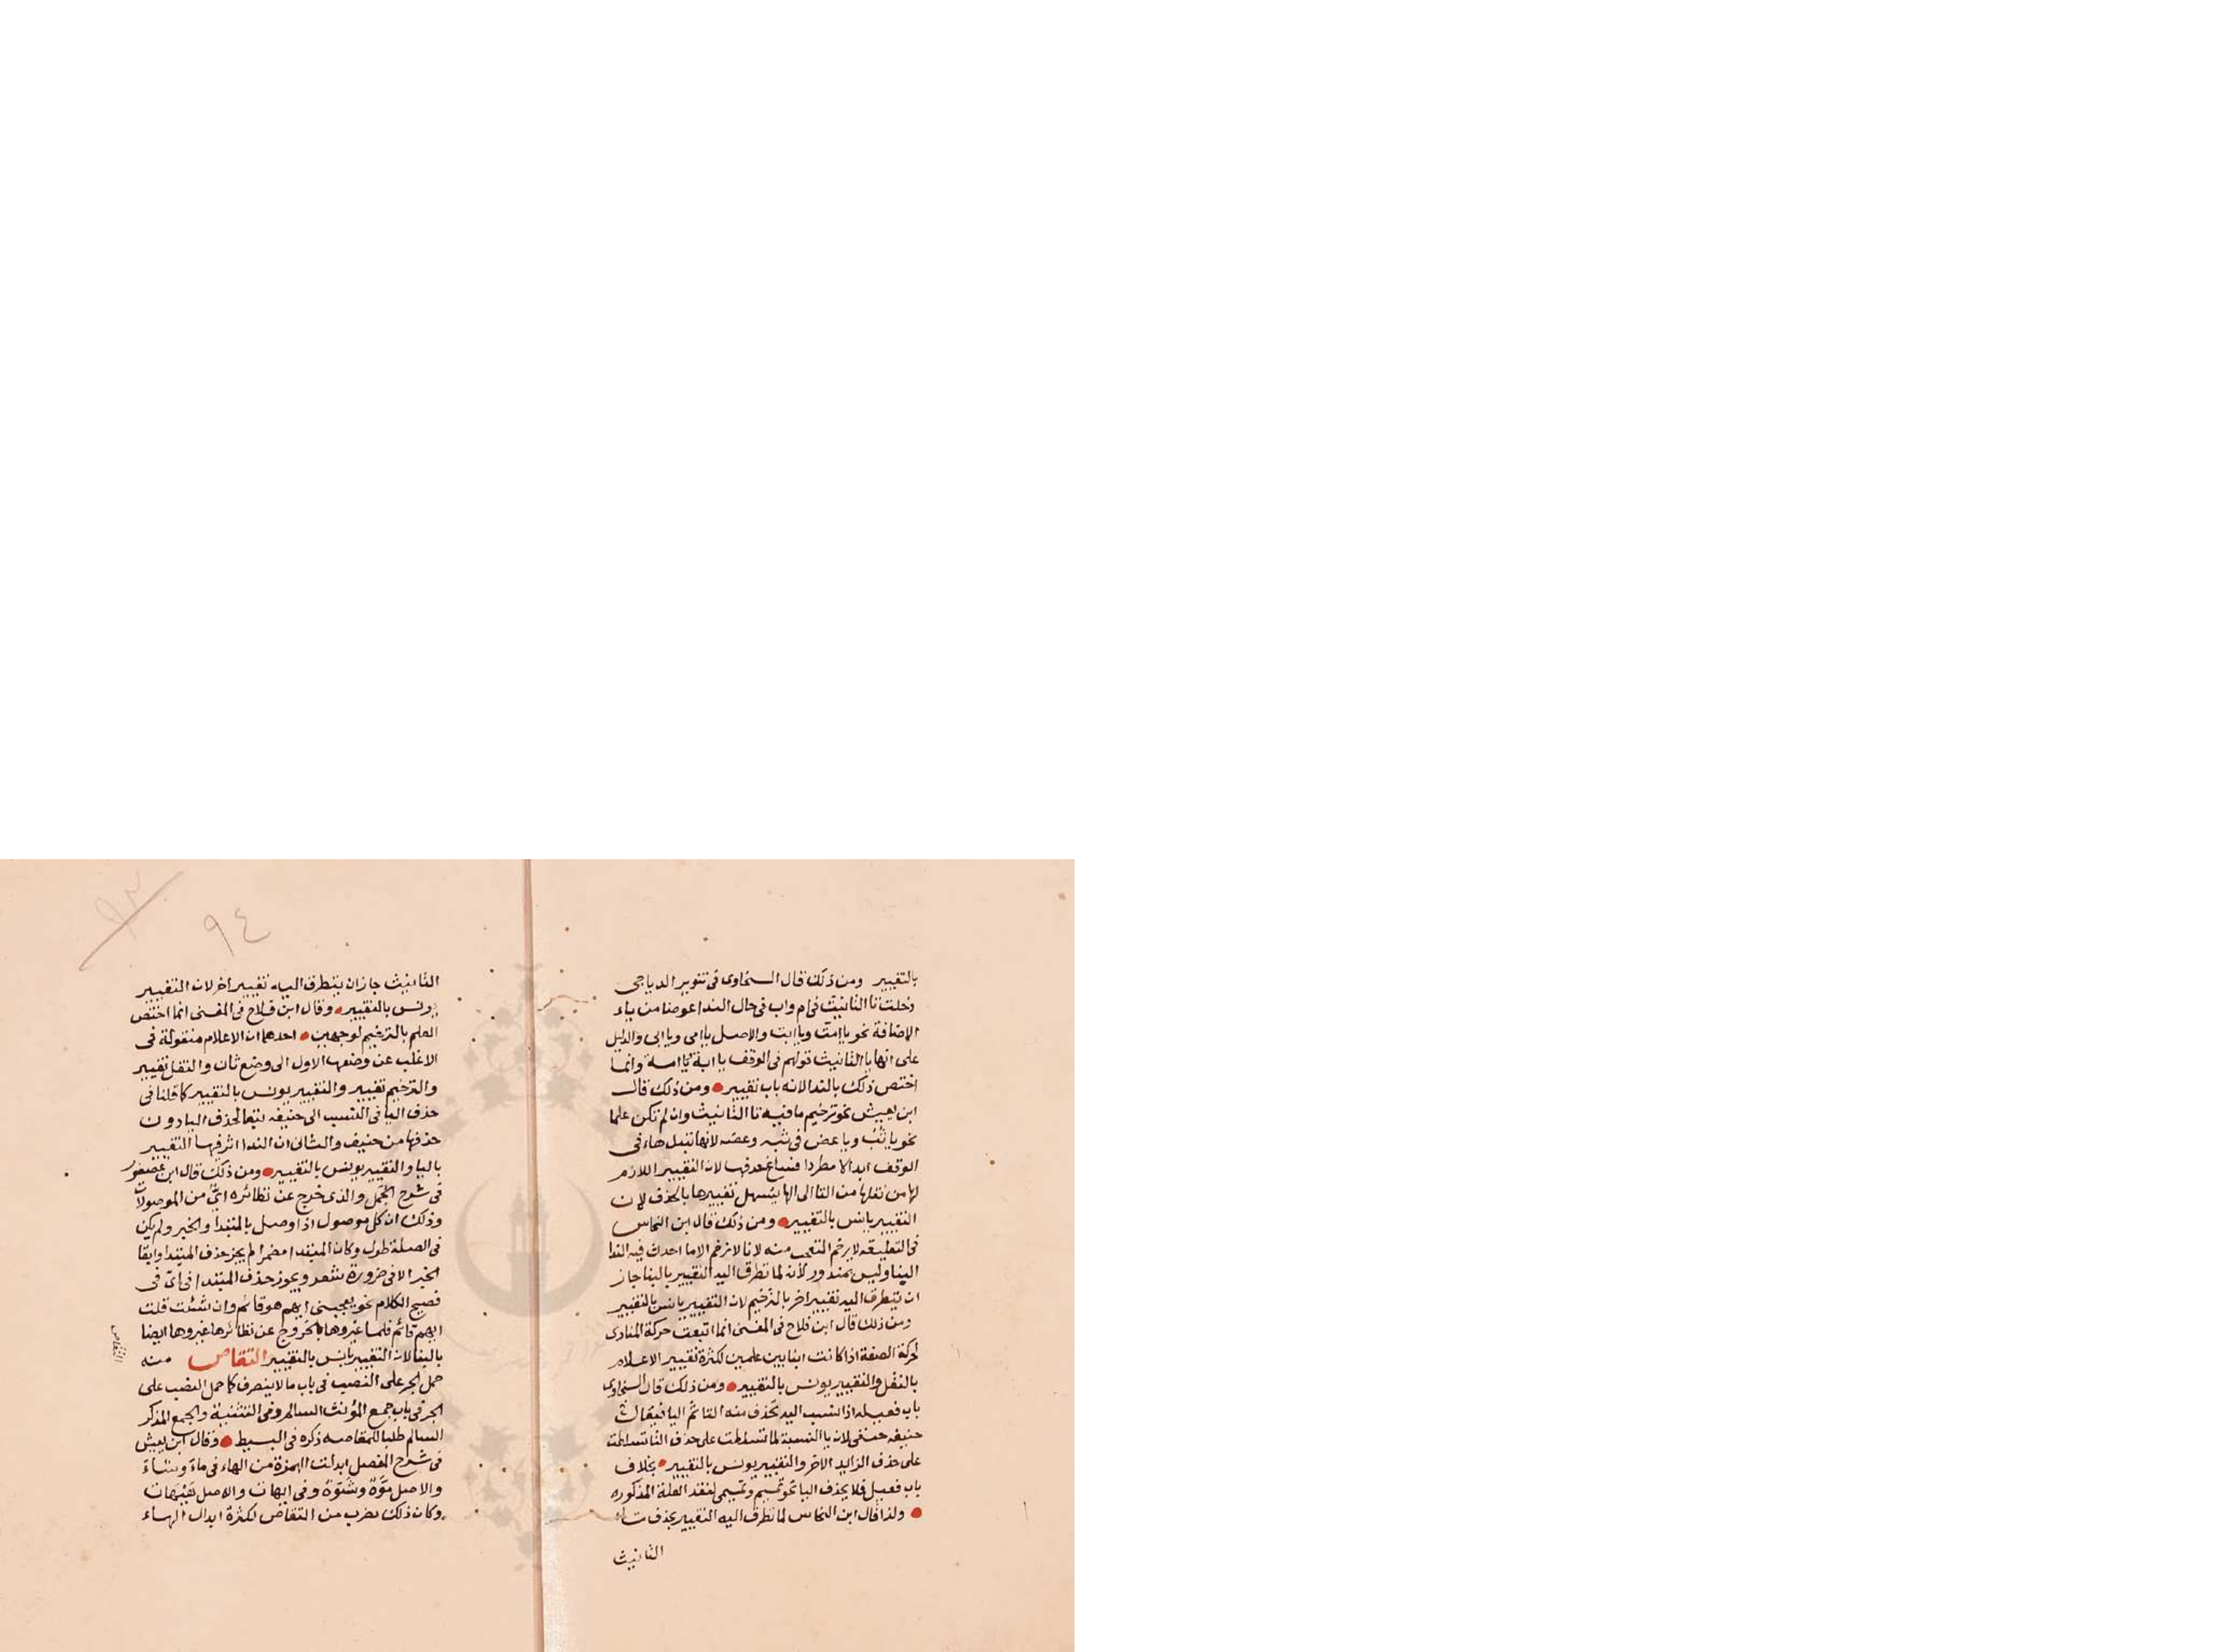 بالتغيير ومن ذلك قال السخاوى فى تنوير الدياجى
دخلت تا التانيث فى ام واب فى حال الندا عوضا من ياء
الاضافة نحو يا امت ويا ابت والاصل يا امى ويا ابى والدليل
على انها تا التانيث قولهم فى الوقف يا ابة ويا امة وانما
اختص ذلك بالندا لانه باب تغيير ومن ذلك قال
ابن يعيش نحو ترخيم ما فيه تا التانيث وان لم تكن علما
نحو يا ثب ويا عض فى ثبه وعضه لانها تبدل هاء فى
الوقف ابدالا مطردا فساغ حذفها لان التغيير اللازم
لها من نقلها من التا الى الها يسهل تغييرها بالحذف لان
التغيير يانس بالتغيير ومن ذلك قال ابن النحاس
فى التعليقه لا يرخم المتعجب منه لانا لا نرخم الا ما احدث فيه الندا
البنا وليس بمندور لأن لما تطرق اليه التغيير بالبنا جاز
ان يتطرق اليه تغيير اخر بالترخيم لان التغيير يانس بالتغيير
ومن ذلك قال ابن فلاح فى المغنى انما اتبعت حركة المنادى
لحركة الصفة اذا كانت ابنا بين علمين لكثرة تغيير الاعلام
بالنقل والتغيير يونس بالتغيير ومن ذلك قال السخاوى
باب فعيله اذا نسب اليه تحذف منه التا ثم اليا فيقال فى
حنيفه حنفى لان يا النسبة لما تسلطت على حذف التا تسلطت
على حذف الزايد الاخر والتغيير يونس بالتغيير بخلاف
باب فعيل فلا يحذف اليا نحو تميم وتميمى لفقد العلة المذكوره
ولذا قال ابن النحاس لما تطرق اليه التغيير بحذف تاء
التانيث
٩٣
٩٤
التانيث جاز ان يتطرق اليه تغيير اخر لان التغيير
يونس بالتغيير وقال ابن فلاح فى المغنى انما اختص
العلم بالترخيم لوجهين احدهما ان الاعلام منقولة فى
الاغلب عن وضعها الاول الى وضع ثان والنقل تغيير
والترخيم تغيير والتغيير يونس بالتغيير كما قلنا فى
حذف اليا فى النسب الى حنيفه تبعا لحذف التا دون
حذفها من حنيف والثانى ان الندا اثر فيها التغيير
بالبنا والتغيير يونس بالتغيير ومن ذلك قال ابن عصفور
فى شرح الجمل والذى خرج عن نظائره اىّ من الموصولات
وذلك ان كل موصول اذا وصل بالمبتدأ والخبر ولم يكن
فى الصلة طول وكان المبتدا مضمرا لم يجز حذف المبتدا وابقا
الخبر الا فى ضرورة شعر ويجوز حذف المبتدا فى اىّ فى
فصيح الكلام نحو يعجبنى ايهم هو قائم وان شئت قلت
ايهم قائم فلما غيروها بالخروج عن نظائرها غيروها ايضا
بالبنا لان التغيير يانس بالتغيير التقاص منه
حمل الجر على النصب فى باب ما لا ينصرف كما حمل النصب على
الجر فى باب جمع المؤنث السالم وفى التثنية والجمع المذكر
السالم طلبا للمقاصه ذكره فى البسيط وقال ابن يعيش
فى شرح المفصل ابدلت الهمزة من الهاء فى ماء وشاء
والاصل موّة وشوّة وفى ايهات والاصل هيهات
وكان ذلك بضرب من التقاص لكثرة ابدال الهاء
التقاص